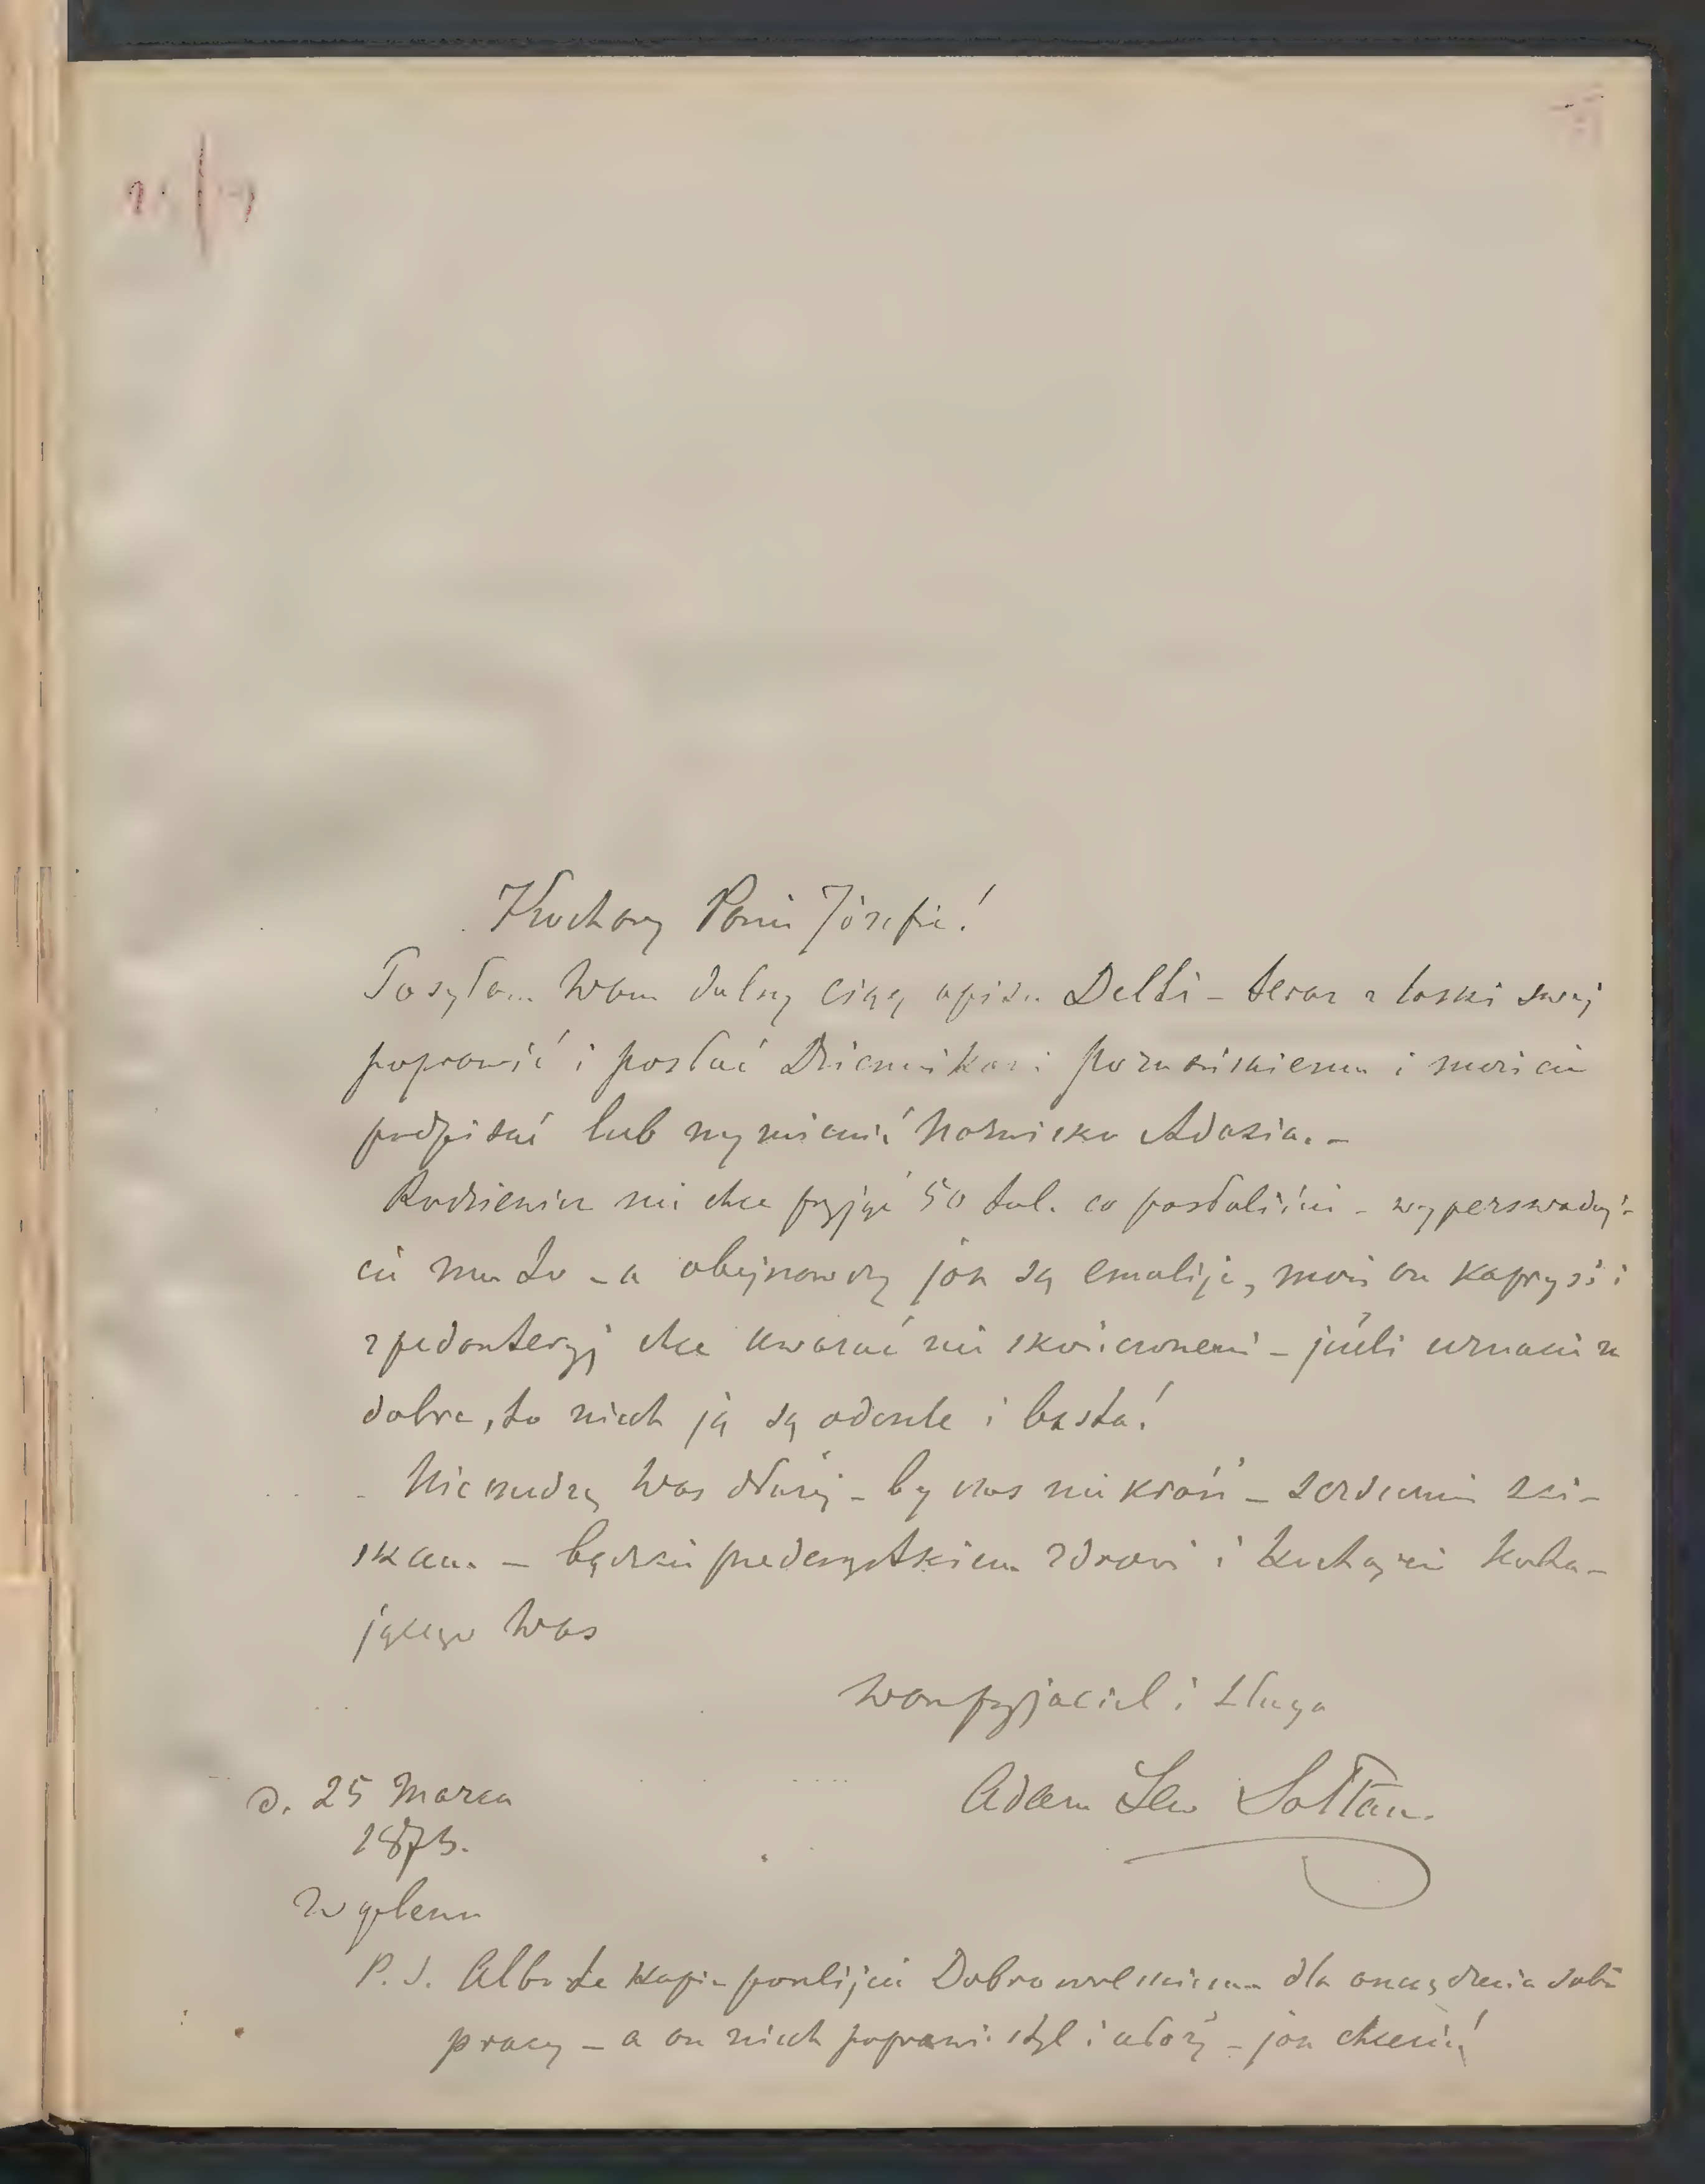 Kochany Panie Józefie!
Posyłam Wam dalszy ciąg opisu Delhi – teraz z łaski swej
poprawić i posłać Dziennikowi Poznańskiemu i możecie
podpisać lub wymienić Nazwisko Adasia. –
nie chce przyjąć 50 tal. co posłaliście – wyperswaduj-
cie mu to – a obejrzawszy jak są emalije, może on kaprysi i
z pedanteryj chce uważać nie skończonemi – jeżeli uznacie za
dobre, to niech je są odeszle i basta!
Nie nudzę Was dłużej – by czas nie kraść – serdecznie ści-
skam – bądźcie przedewszystkiem zdrowi i kochajcie kocha-
jącego Was
Wam przyjaciel i sługa
Adam Lew Sołtan.
d. 25 Marca
187
P. S. Albo te kopie poszlijcie Dobrowolskiemu dla oszczędzenia sobie
pracy – a on niech poprawi styl i ułoży – jak chcecie!